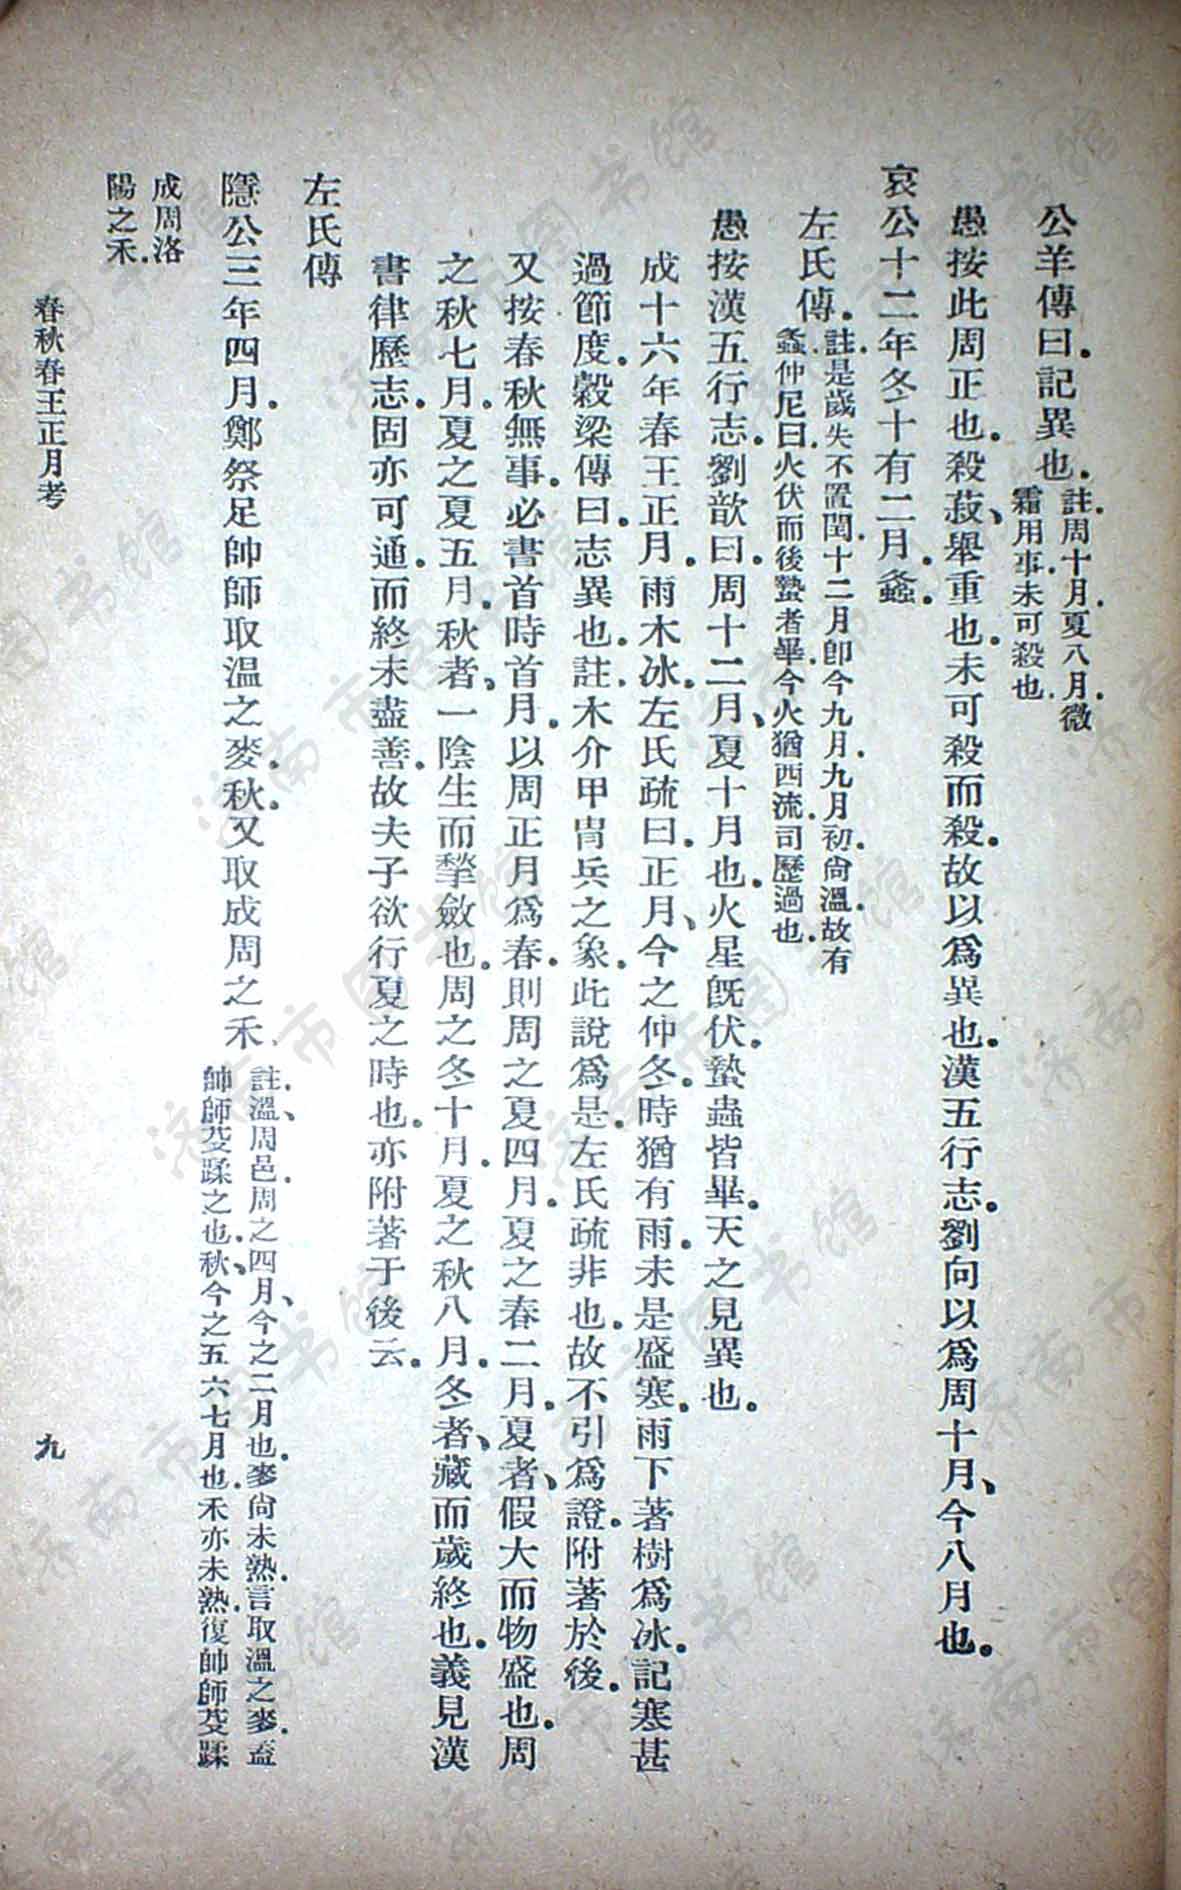 公羊傳曰。記異也。註。周十月。夏八月。微
霜用事。未可殺也。
愚按此周正也。殺菽、舉重也。未可殺而殺。故以爲異也。漢五行志。劉向以爲周十月、今八月也。
哀公十二年冬十有二月。螽。
左氏傳。註。是歲失不置閏。十二月卽今九月。九月初。尙溫。故有
螽。仲尼曰。火伏而後蟄者畢。今火猶西流。司歷過也。
愚按漢五行志。劉歆曰。周十二月、夏十月也。火星旣伏。蟄蟲皆畢。天之見異也。
成十六年春王正月。雨木冰。左氏疏曰。正月、今之仲冬。時猶有雨。未是盛寒。雨下著樹爲冰。記寒甚
過節度。穀梁傳曰。志異也。註。木介甲冑兵之象。此說爲是。左氏疏非也。故不引爲證。附著於後。
又按春秋無事。必書首時首月。以周正月爲春。則周之夏四月。夏之春二月。夏者、假大而物盛也。周
之秋七月。夏之夏五月。秋者、一陰生而揫斂也。周之冬十月。夏之秋八月。冬者、藏而歲終也。義見漢
書律歷志。固亦可通。而終未盡善。故夫子欲行夏之時也。亦附著于後云。
左氏傳
隱公三年四月。鄭祭足帥師取溫之麥。秋。又取成周之禾。註。溫、周邑。周之四月、今之二月也。麥尙未熟。言取溫之麥。蓋
帥師芟蹂之也。秋、今之五六七月也。禾亦未熟。復帥師芟蹂
成周洛
陽之禾。
春秋春王正月考
九
济南市图书馆